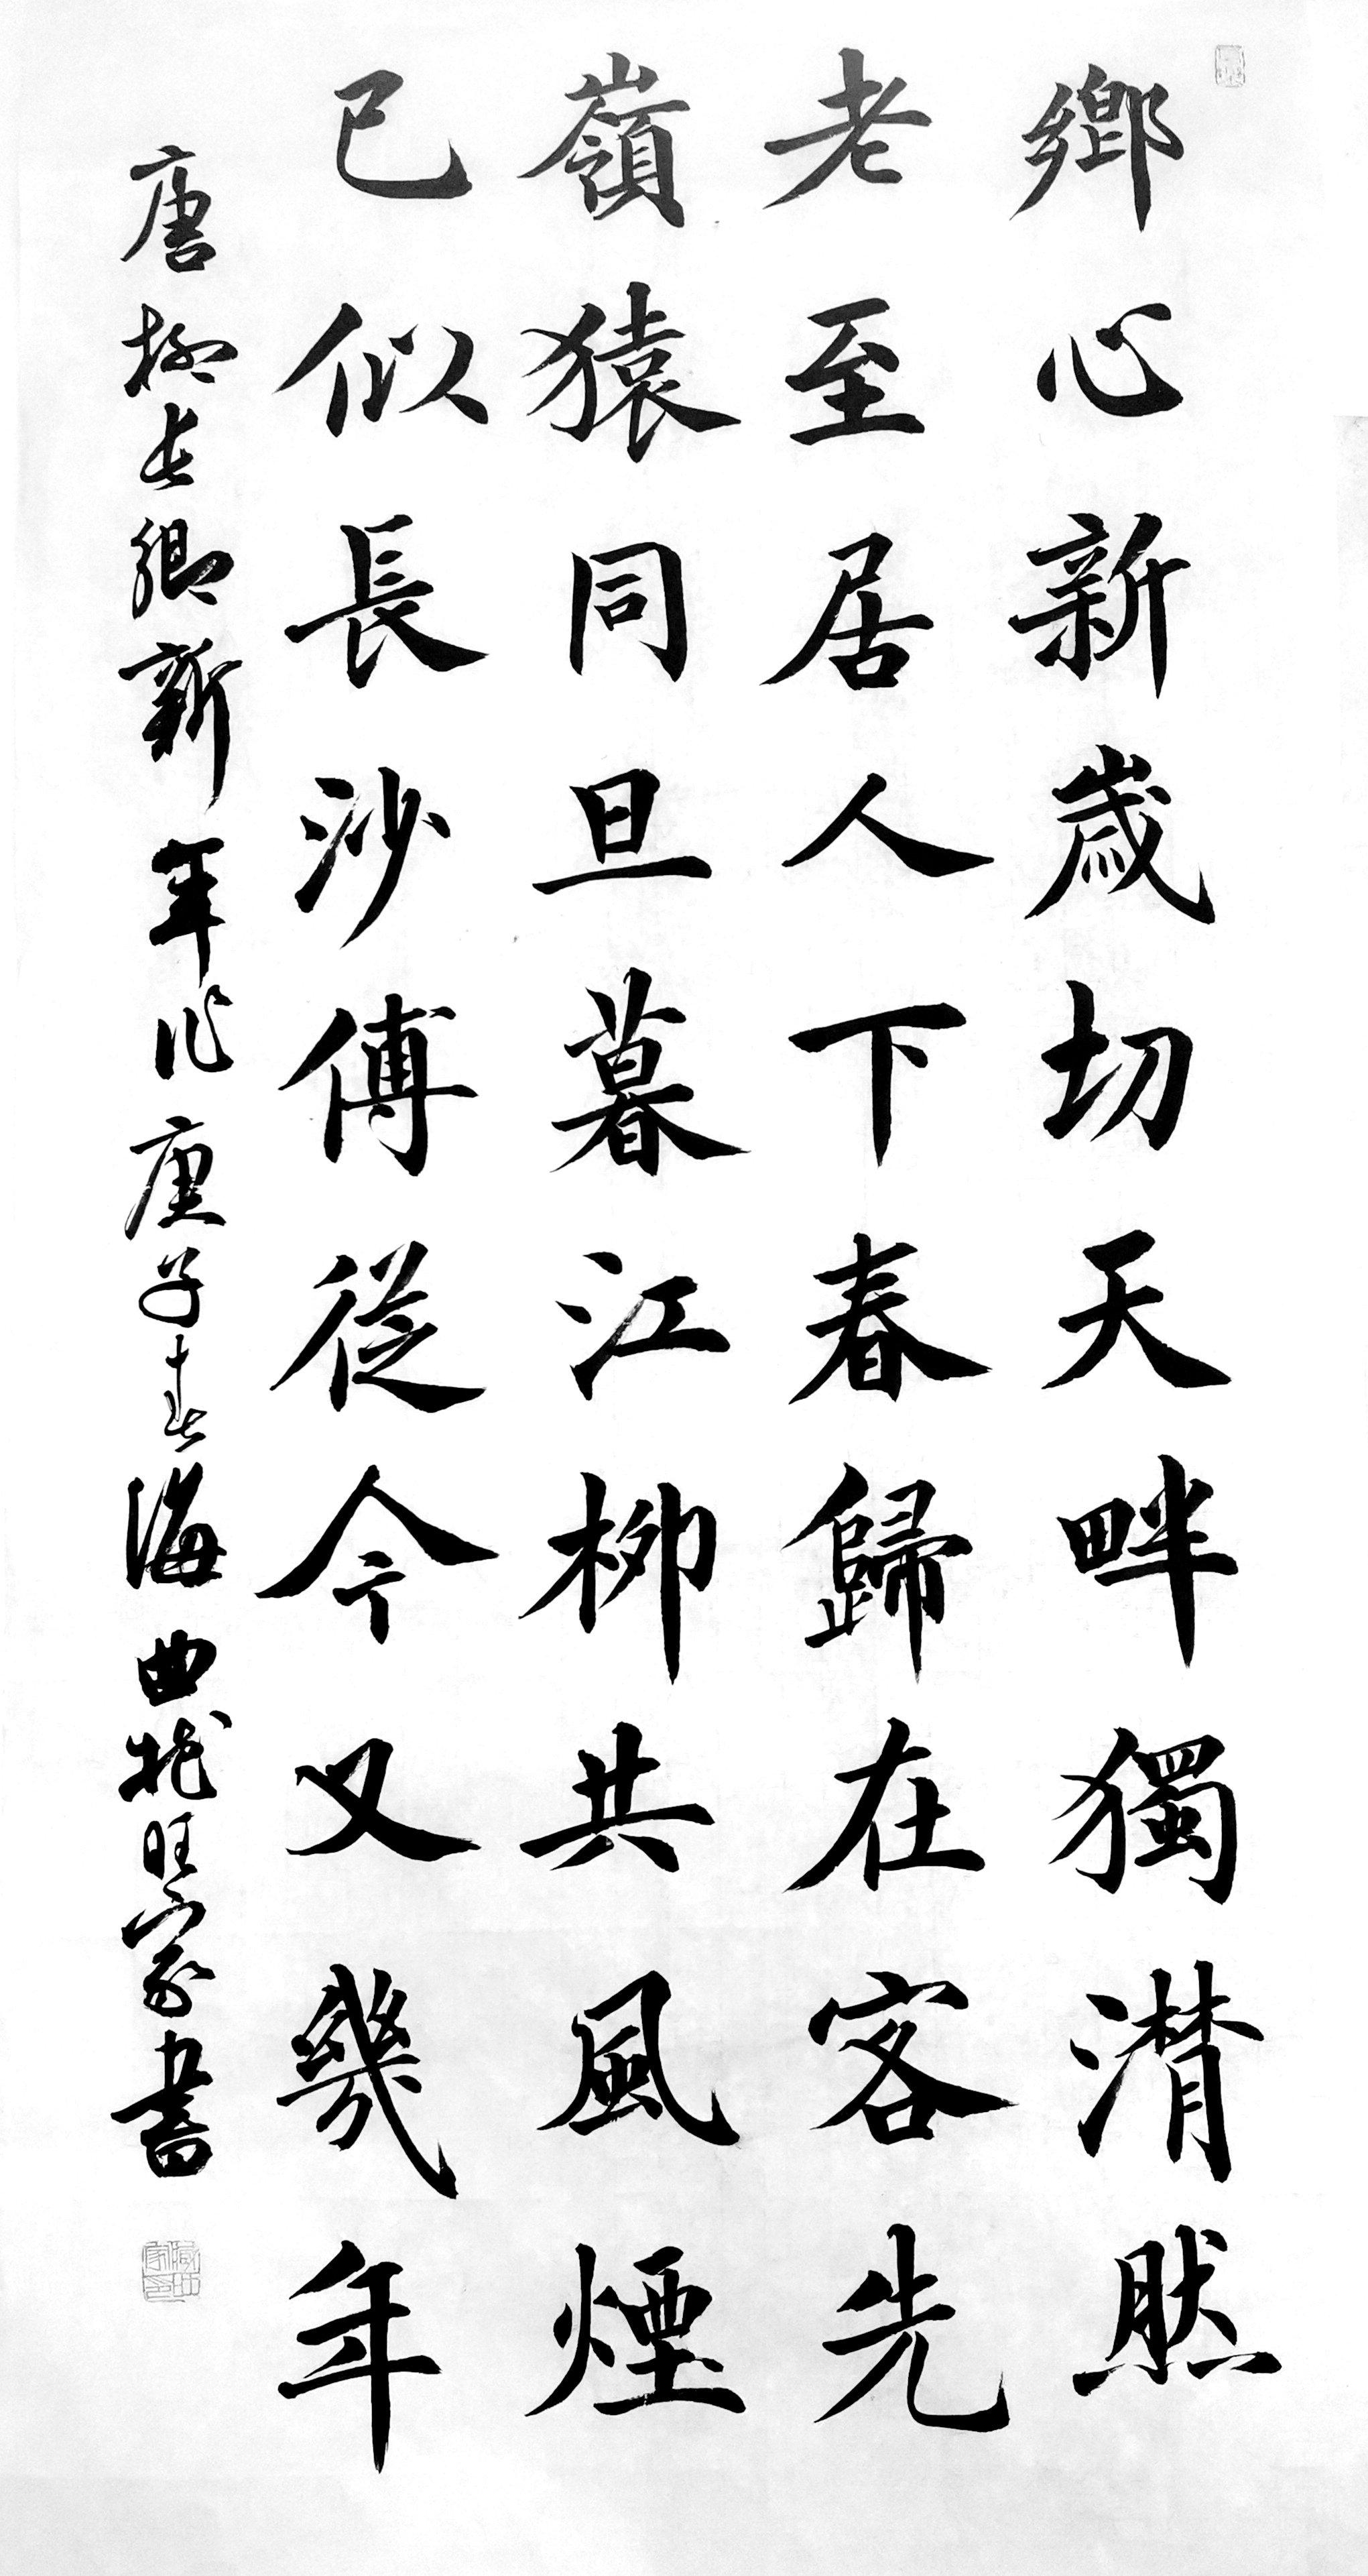 鄉心新歲切天畔獨潸然
老至居人下春歸在客先
嶺猿同旦暮江柳共風煙
已似長沙傅從今又幾年
唐柳長卿新年作庚子春海曲於旺家書